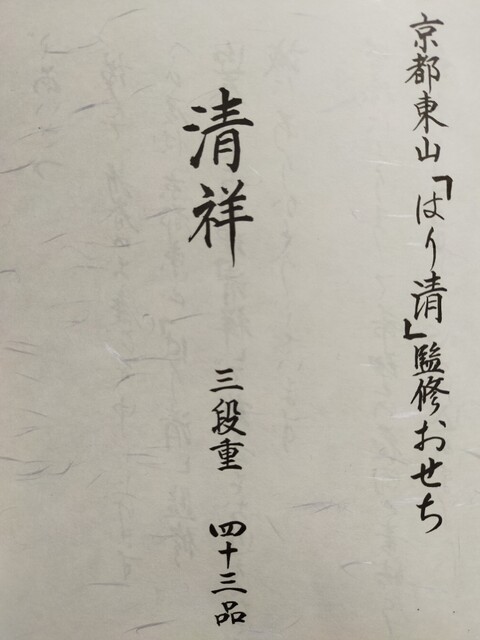 京都東山「はり清」監修おせち
清祥
三段重 四十三品